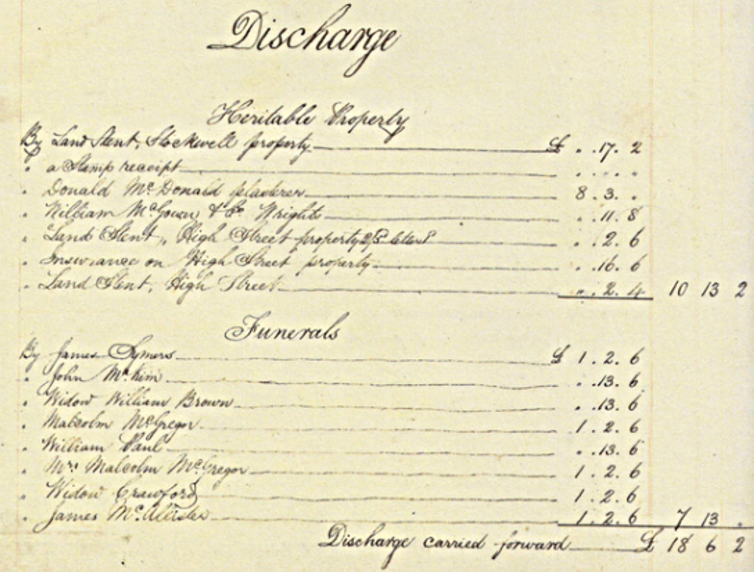 Discharge
Heritable Property
By Land Stent, Stockwell property £ " . 17 . 2
" a Stamp receipt " . " . "
" Donald McDonald plasterer 8 . 3 . "
" William McGown & Co Wrights " . 11 . 8
" Land Stent, High Street property 2/5 " . 2 . 6
" Insurance on High Street property " . 16 . 6
" Land Stent, High Street " . 2 . 4 10 13 2
Funerals
By James Symers £ 1 . 2 . 6
" John McKim " . 13 . 6
" Widow William Brown " . 13 . 6
" Malcolm McGregor 1 . 2 . 6
" William Paul " . 13 . 6
" Mrs Malcolm McGregor 1 . 2 . 6
" Widow Crawford 1 . 2 . 6
" James McAllister 1 . 2 . 6 7 13 "
Discharge carried forward £ 18 6 2